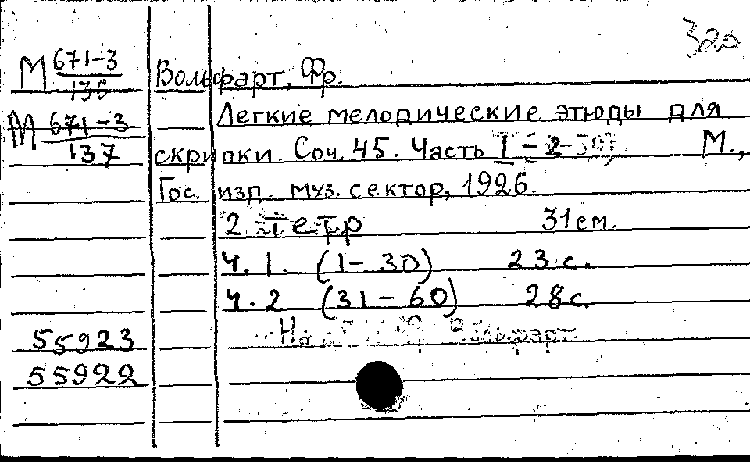 320
М 671-3/136 Вольфарт, Фр.
М 671-3/137 Легкие мелодические этюды для
скрипки. Соч. 45. Часть I-2 М.,
Гос. изд. муз. сектор, 1926.
2 тетр 31 см.
Ч. 1. (1-30) 23 с.
Ч. 2 (31-60) 28 с.
55923
55922